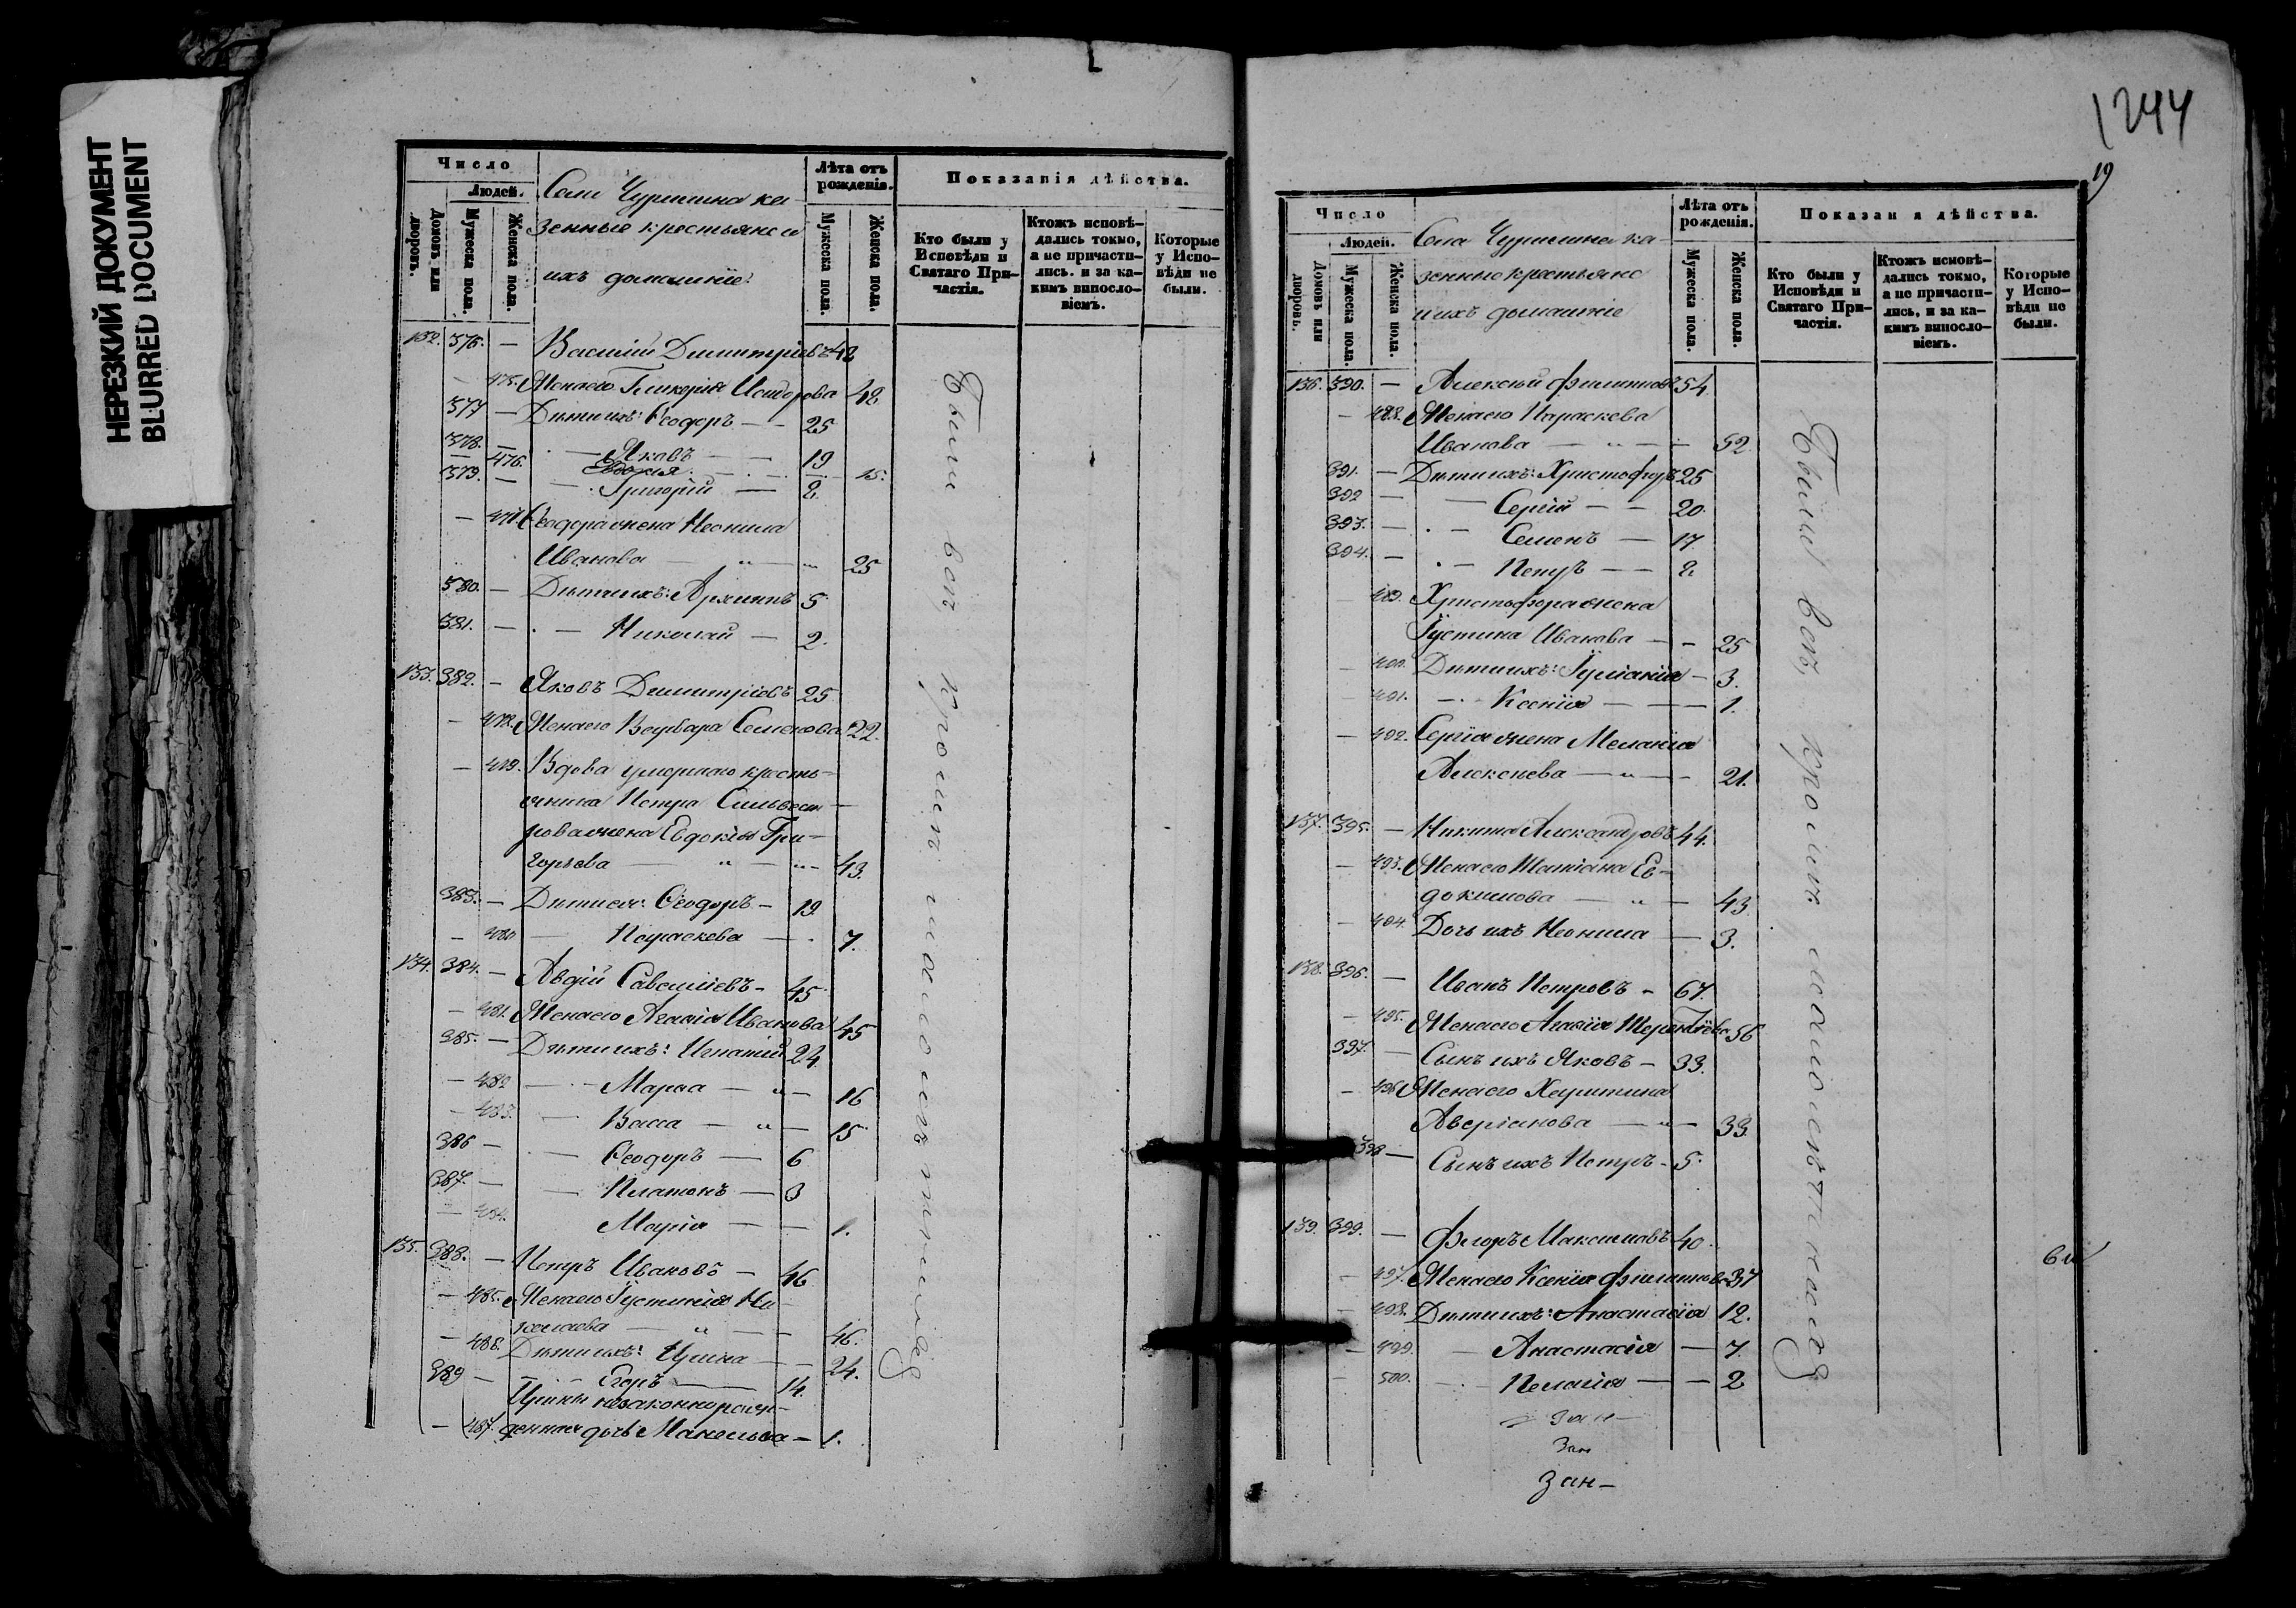 НЕРЕЗКИЙ ДОКУМЕНТ
BLURRED DOCUMENT
Число
Людей.
Домовъ или дворовъ.
Мужеска пола.
Женска пола.
Села Чурилина ка-
зенные крестьяне и
ихъ домашніе:
Лѣта отъ рожденія.
Мужеска пола.
Женска пола.
Показанія дѣйства.
Кто были у Исповѣди и Святаго При-частія.
Ктожъ исповѣ-дались токмо, а не причасти-лись. и за ка-кимъ винносло-віемъ.
Которые у Испо-вѣди не были.
132. 376. — Василій Димитріевъ 48
— 475. Жена его Гликерія Исидорова 48
377 — Дѣти ихъ: Ѳеодоръ — — 25
378. — Яковъ — — 19
— 476. Евдокія — 15.
379. — Григорій — 8
— 477. Ѳеодора жена Неонила
Иванова — „ — 25
380. — Дѣти ихъ: Архиппъ 5
381. — . — Николай — 2.
133. 382. — Яковъ Димитріевъ 25
— 478. Жена его Варвара Семенова 22.
— 479. Вдова умершаго кресть-
янина Петра Сильвест-
рова жена Евдокія Гри-
горьева — „ — 43.
383. — Дѣти его: Ѳеодоръ — 19
— 480 — Параскева — . 7.
134. 384. — Авдій Савельевъ — 45
— 481. Жена его Агафія Иванова 45
385. — Дѣти ихъ: Игнатій 24
— 482 — Марѳа — „ — 16
— 483. — Васса — „ — 15
386 — . — Ѳеодоръ — 6
387. — — Платонъ — 3
— 484. Марія — — 1.
135. 388. — Петръ Ивановъ — 46
— 485. Жена его Іустинія Ни-
колаева — „ — 46.
— 486. Дѣти ихъ: Ирина — — 24.
389 — — Егоръ — 14.
Ирины незаконнорож-
— 487. денная дочь Макельва — 1.
Были всѣ, кромѣ малолѣтнихъ
1244
19
Число
Людей.
Домовъ или дворовъ.
Мужеска пола.
Женска пола.
Села Чурилина ка-
зенные крестьяне
и ихъ домашніе
Лѣта отъ рожденія.
Мужеска пола.
Женска пола.
Показан я дѣйства.
Кто были у Исповѣди и Святаго При-частія.
Ктожъ исповѣ-дались токмо, а не причасти-лись, и за ка-кимъ винносло-віемъ.
Которые у Испо-вѣди не были.
136. 390. — Алексѣй Филипповъ 54
— 488. Жена его Параскева
Иванова — „ — 52
391. — Дѣти ихъ: Христофоръ 25
392 — — Сергій — — 20.
393. — . — Семенъ — 17
394. — . — Петръ — — 8
489. Христофора жена
Іустина Иванова — — 25
— 490. Дѣти ихъ: Іуліанія — 3.
491. — . Ксенія — — 1.
— 492. Сергія жена Меланія
Алексѣева — „ — 21.
137. 395. — Никита Александровъ 44.
— 493. Жена его Татіана Ев-
докимова — „ — 43
— 494. Дочь ихъ Неонила — 3.
138. 396. — Иванъ Петровъ — 67.
— 495. Жена его Агафія Терентіева 56
397. — Сынъ ихъ Яковъ — 33.
— 496 Жена его Харитина
Аверіанова — „ — 33
398 — Сынъ ихъ Петръ — 5.
139. 399. — Флоръ Максимовъ 40.
— 497. Жена его Ксенія Филиппова 37
— 498. Дѣти ихъ: Анастасія 12.
— 499. — Анастасія — 7.
— 500. — . — Пелагія — — 2
Были всѣ, кромѣ малолѣтнихъ
зан —
Зан
зан —